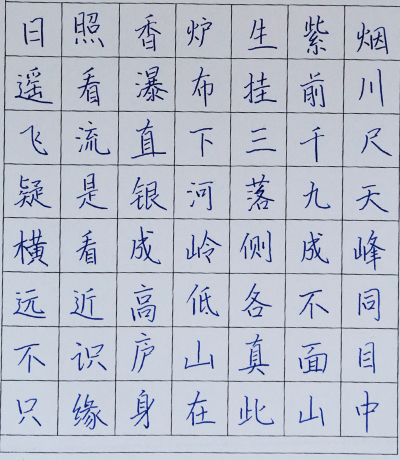 日照香炉生紫烟
遥看瀑布挂前川
飞流直下三千尺
疑是银河落九天
横看成岭侧成峰
远近高低各不同
不识庐山真面目
只缘身在此山中